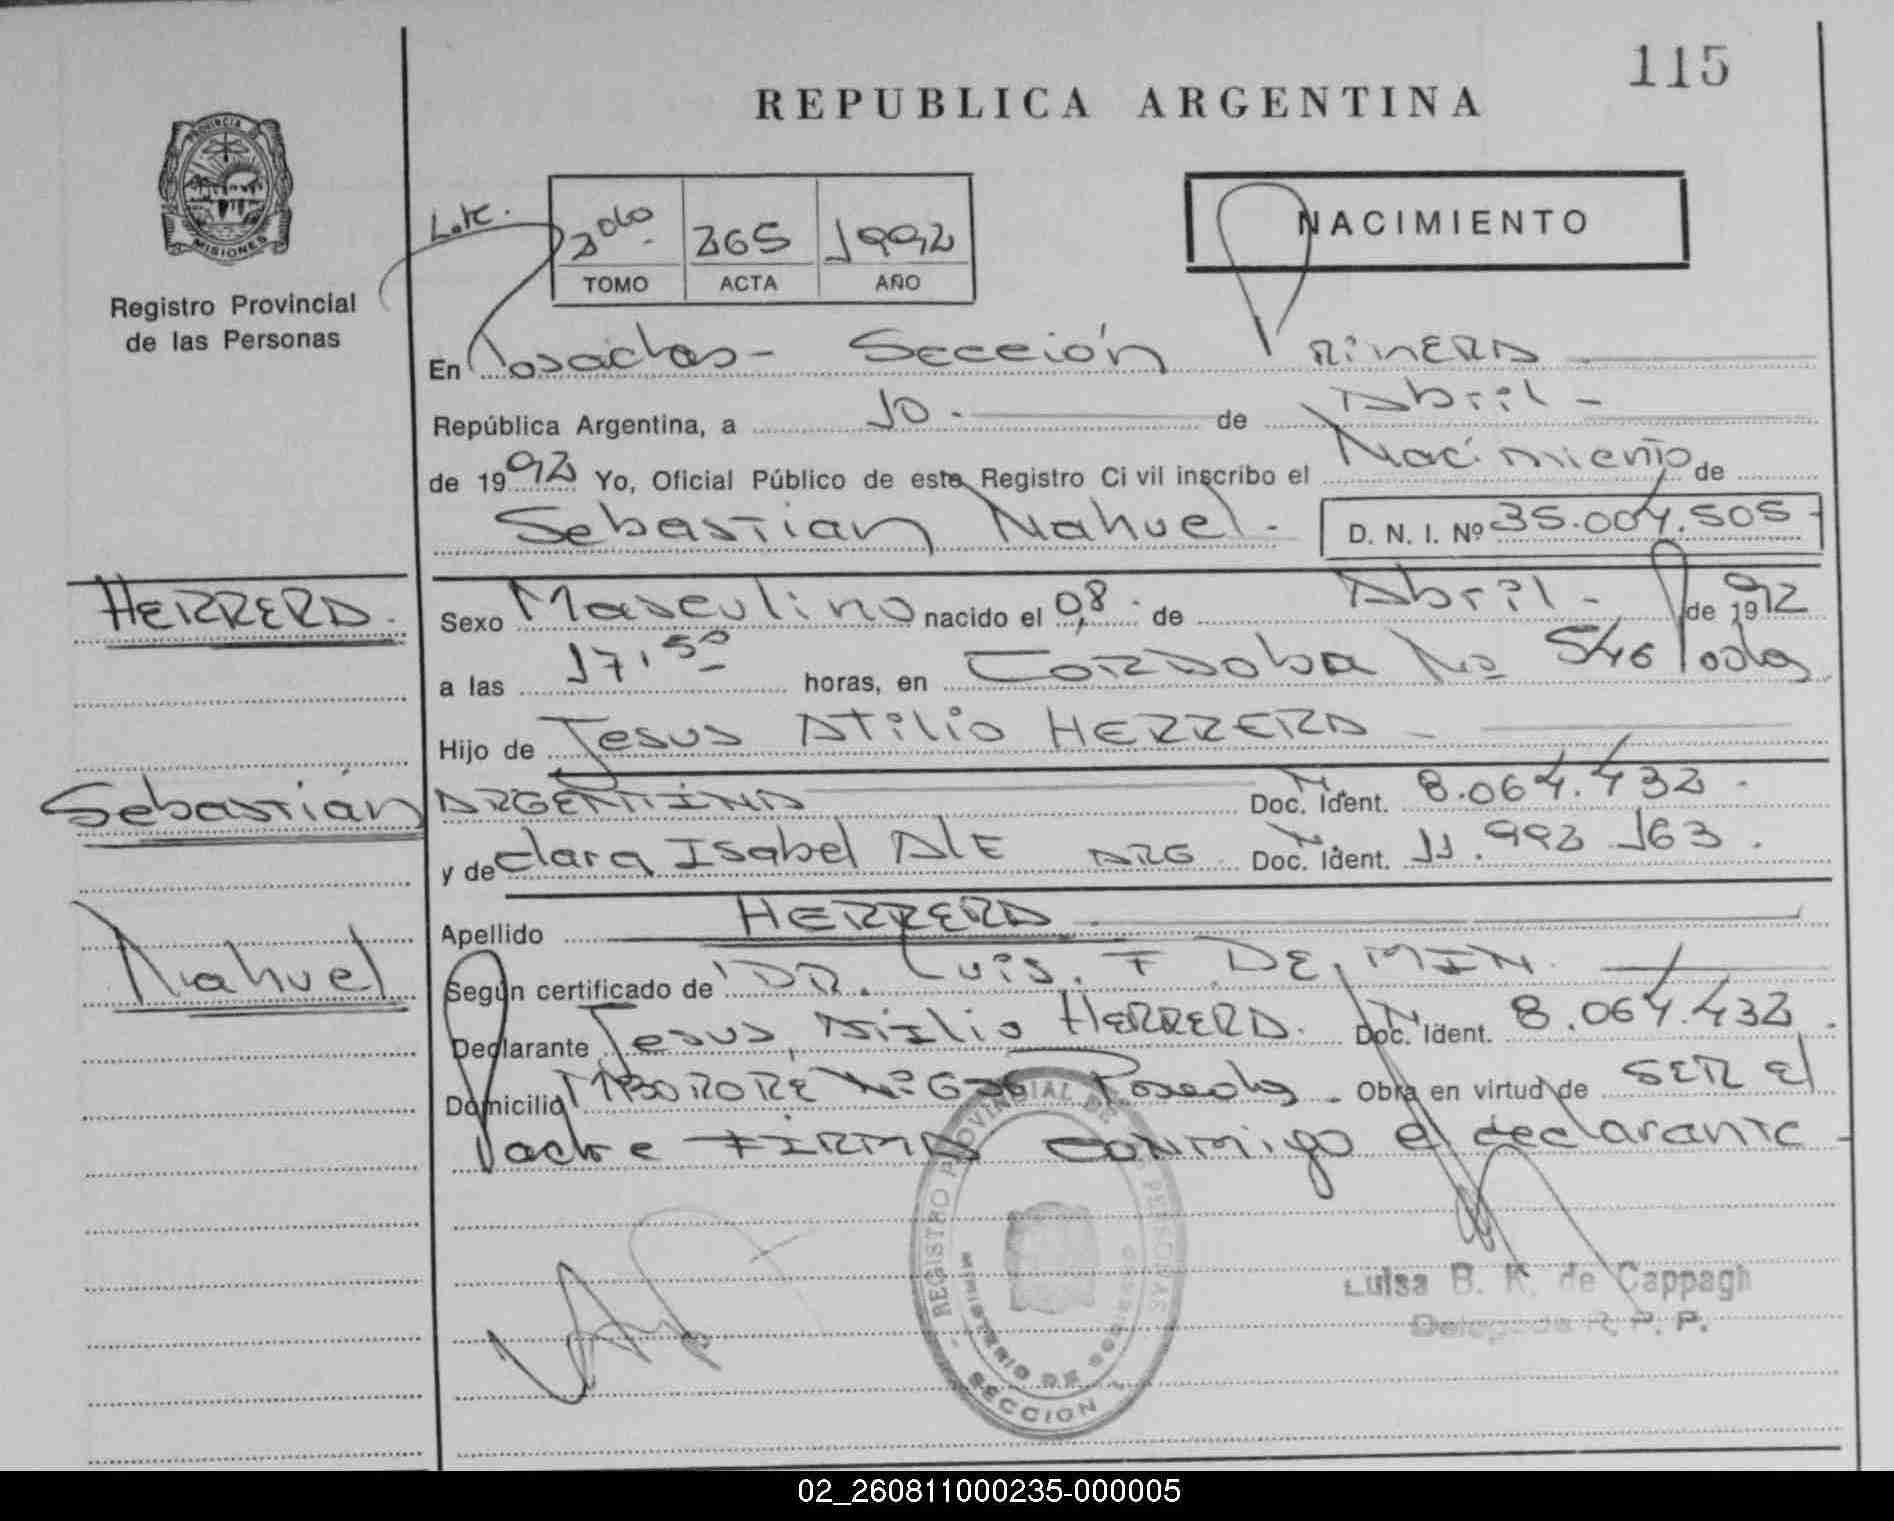 115
REPUBLICA ARGENTINA
PROVINCIA DE
MISIONES
Registro Provincial
de las Personas
2do 265 1992
TOMO ACTA AÑO
NACIMIENTO
En Posadas - Sección Primera
República Argentina, a 10 - de Abril -
de 1992 Yo, Oficial Público de este Registro Civil inscribo el Nacimiento de
Sebastian Nahuel - D. N. I. Nº 35.004.505 -
HERRERA.
Sexo Masculino nacido el 08 - de Abril - de 1992
a las 17,50 horas, en CORDOBA Nº 546 Posdas
Hijo de Jesus Atilio HERRERA -
Sebastián
ARGENTINA Doc. Ident. 8.064.432 -
y de Clara Isabel AlE ARG Doc. Ident. 11.992 163.
Apellido HERRERA
Nahuel
Según certificado de DR. Luis. F. DE, MIN.
Declarante Jesus, Atilio HERRERA. Doc. Ident. 8.064.432.
Domicilio MBORORE Nº Posadas. Obra en virtud de SER El
Padre FIRMA conmigo el declarante -
REGISTRO PROVINCIAL DE PERSONAS
MINISTERIO DE GOBIERNO
SECCION
Luisa B. K. de Cappagli
Delegada R. P. P.
02_260811000235-000005